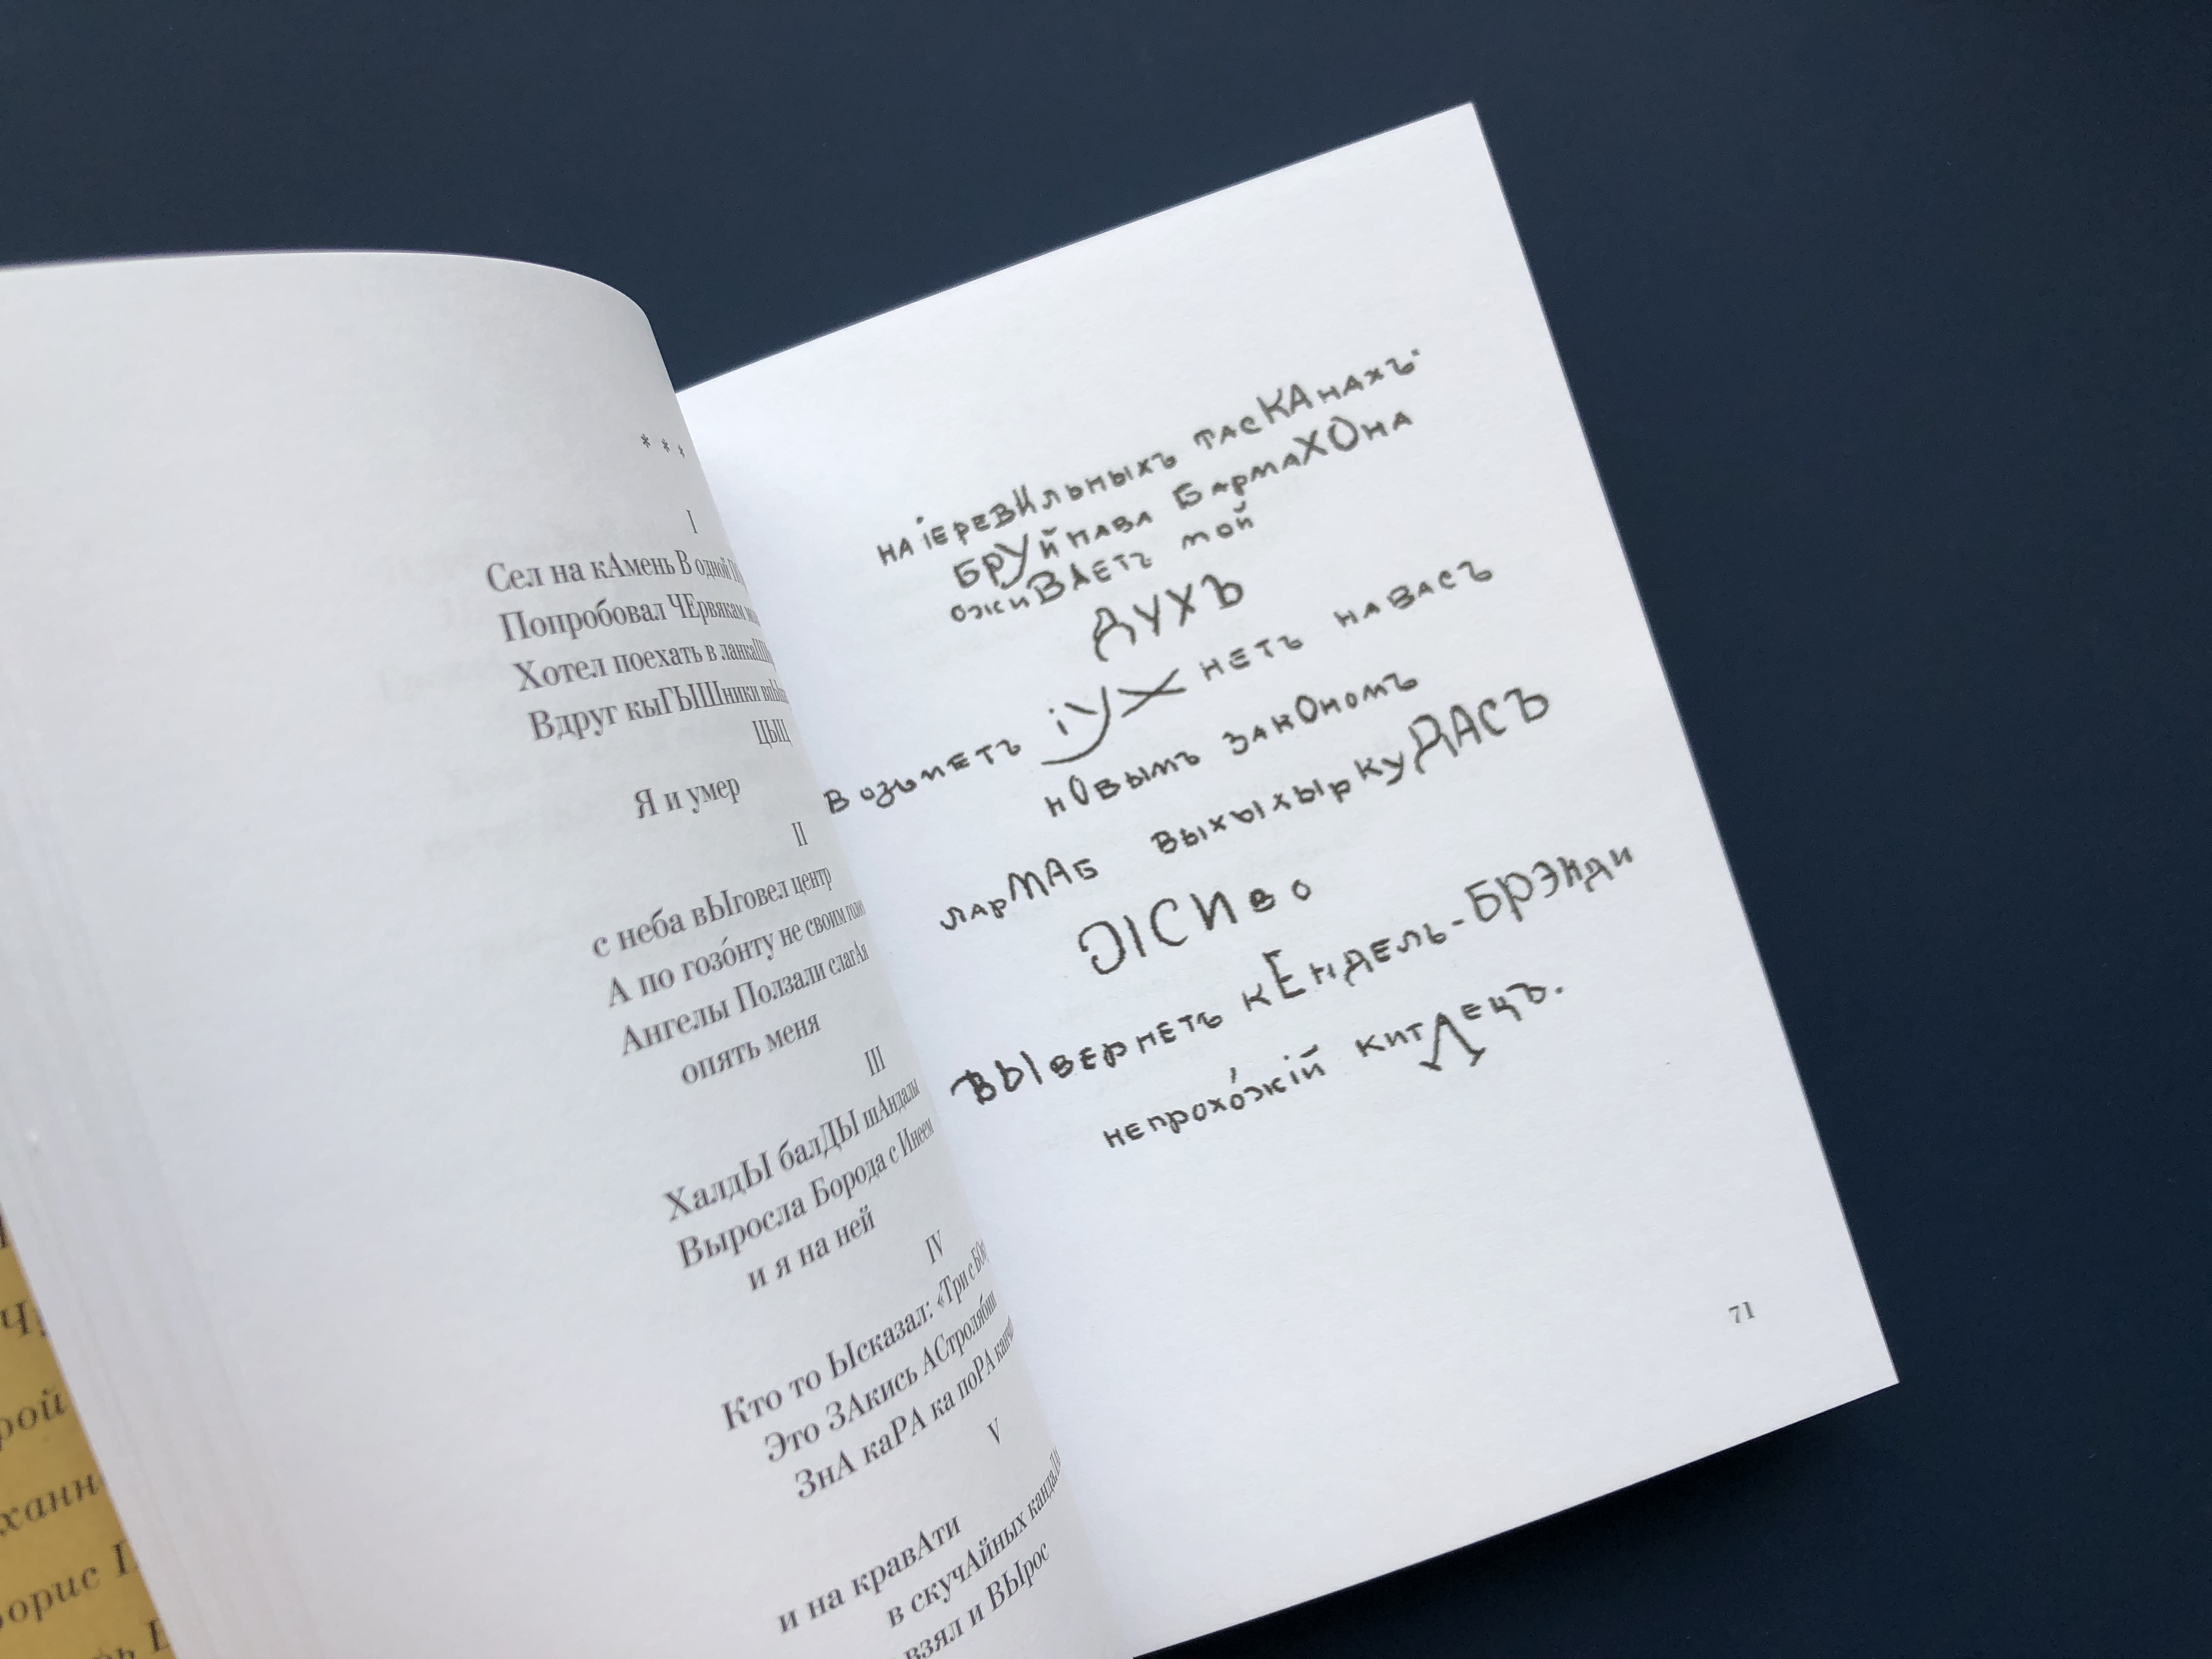 * * *
I
Сел на кАмень В одной
Попробовал ЧЕрвякам
Хотел поехать в
Вдруг кыГЫШники
ЦЫЦ
Я и умер
II
с неба вЫговел центр
А по гозо́нту не своим
Ангелы Ползали слагАя
опять меня
III
ХалдЫ балДЫ шАндалы
Выросла Борода с Инеем
и я на ней
IV
Кто то Ысказал: «Три с
Это ЗАкись АСтролябии
ЗнА каРА ка поРА
V
и на кравАти
в скучАйных
взял и ВЫрос
НА іЕРЕВИльНЫХЪ ТАСКАНАХЪ
БРУЙПАВА БАРМАХОНА
ОЖИВАЕТЪ МОЙ
ДУХЪ
ВОЗЬМЕТЪ іУХ НЕТЪ НАВАСЪ
НОВЫМЪ ЗАКОНОМЪ
ЛАРМАБ ВЫХЫХЫРКУДАСЪ
ЖСИВО
ВЫВЕРНЕТЪ КЕНДЕЛЬ-БРЭНДИ
НЕПРОХО́ЖІЙ КИТДЕЦЪ.
71
рой
ханн
орис